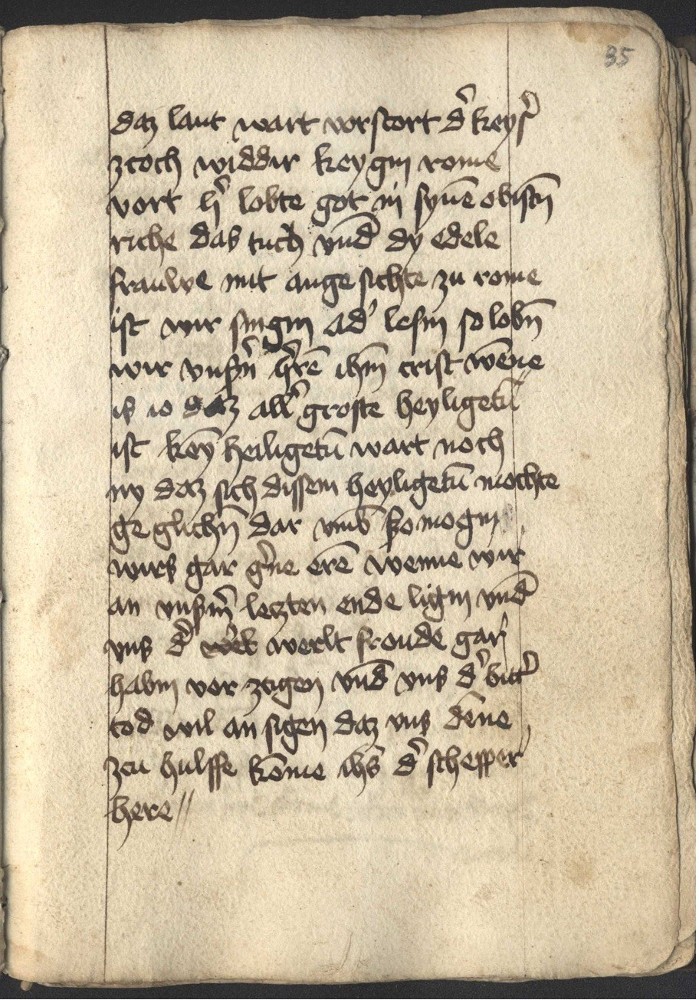 35
daz lant wart vorstort d' keys'
zcoch widdir keygin rome
vort h' lobte got in synē obistn̄
riche das tuch vnd dy edele
frauwe mit angesichte zu rome
ist wir singin ad' lesin so lobn̄
wir vnsm̄ h'rē ihm̄ crist wēne
is io daz all' groste heyligetū
ist key heiligetū wart noch
ny daz sich dissem heyligetū mochte
ge glichn̄ dar vmb so mogin
wirs gar g'ne erē wenne wir
an vnsm̄ leczten ende ligin vnd
vns d' werlt froude gar
habin vor zcigen vnd vns d' bitt'
tod wil an sigen daz vns dēne
zcu hulffe kōme ihs̄ d' schepper
here //